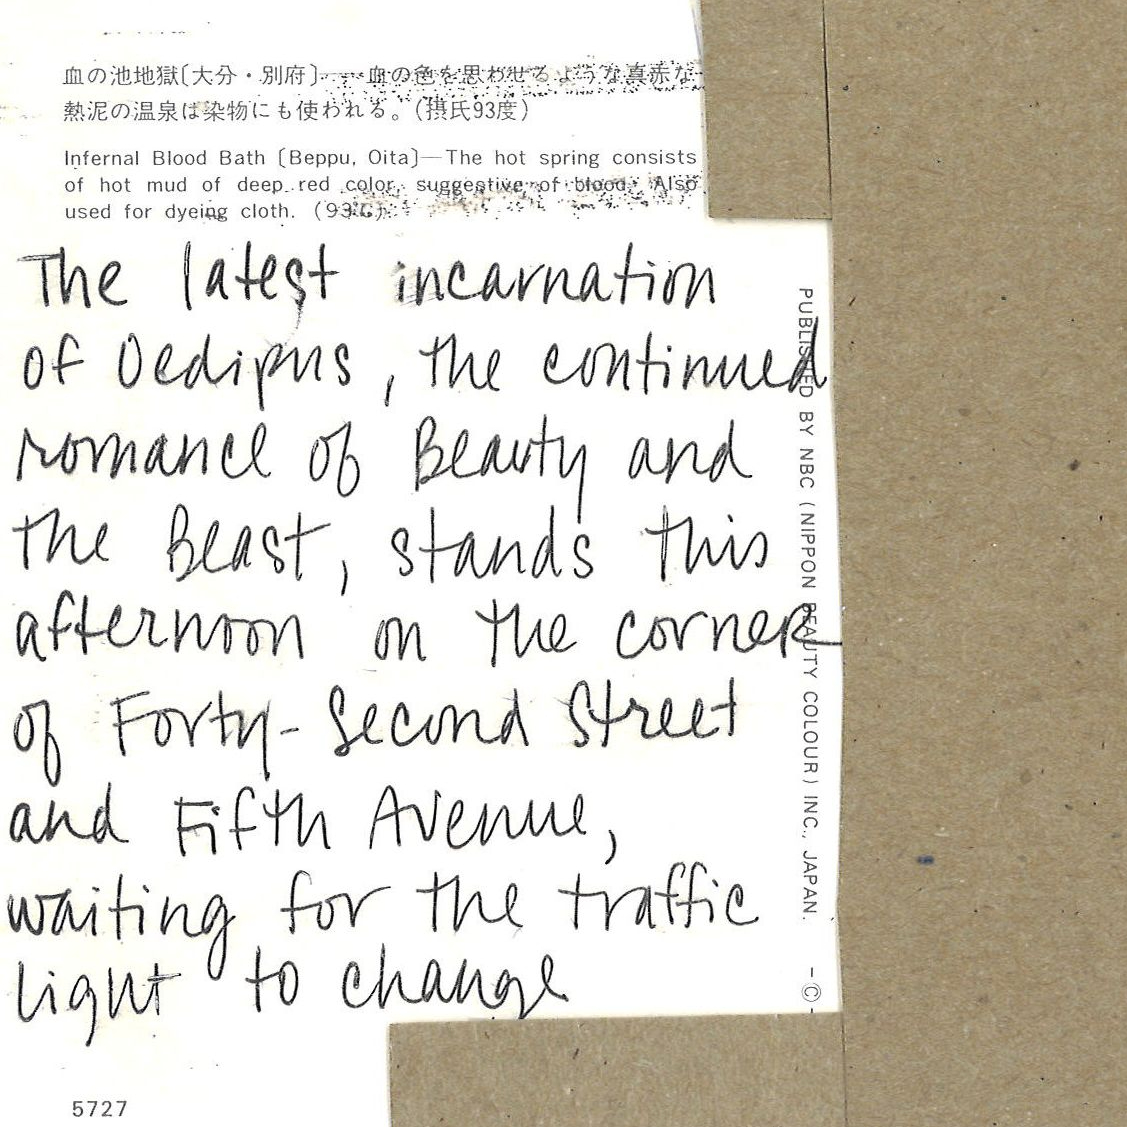 血の池地獄〔大分・別府〕──血の色を思わせるような真赤な
熱泥の温泉は染物にも使われる。(摂氏93度)
Infernal Blood Bath 〔Beppu, Oita〕—The hot spring consists
of hot mud of deep red color, suggestive of blood. Also
used for dyeing cloth. (93℃)
The latest incarnation
of Oedipus, the continued
romance of Beauty and
the Beast, stands this
afternoon on the corner
of Forty-Second Street
and Fifth Avenue,
waiting for the traffic
light to change
PUBLISHED BY NBC (NIPPON BEAUTY COLOUR) INC., JAPAN. -©-
5727